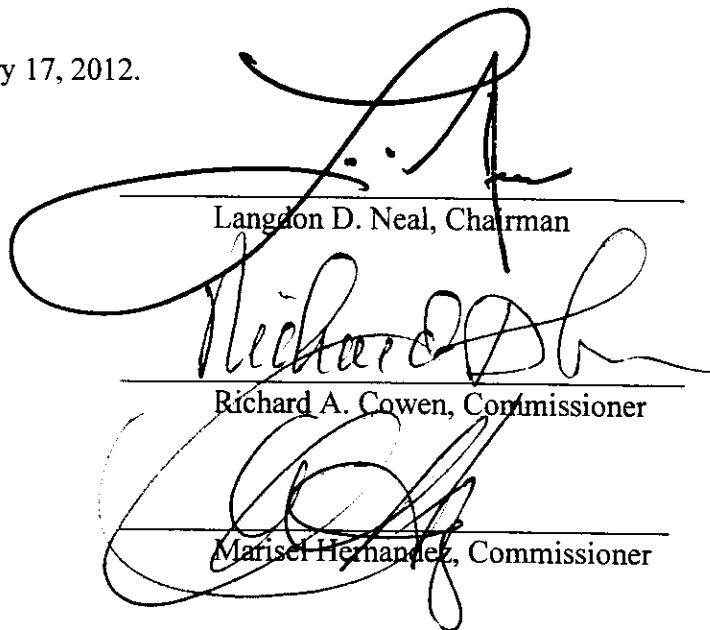 ry 17, 2012.
Langdon D. Neal, Chairman
Richard
Richard A. Cowen, Commissioner
Marisel Hernandez, Commissioner